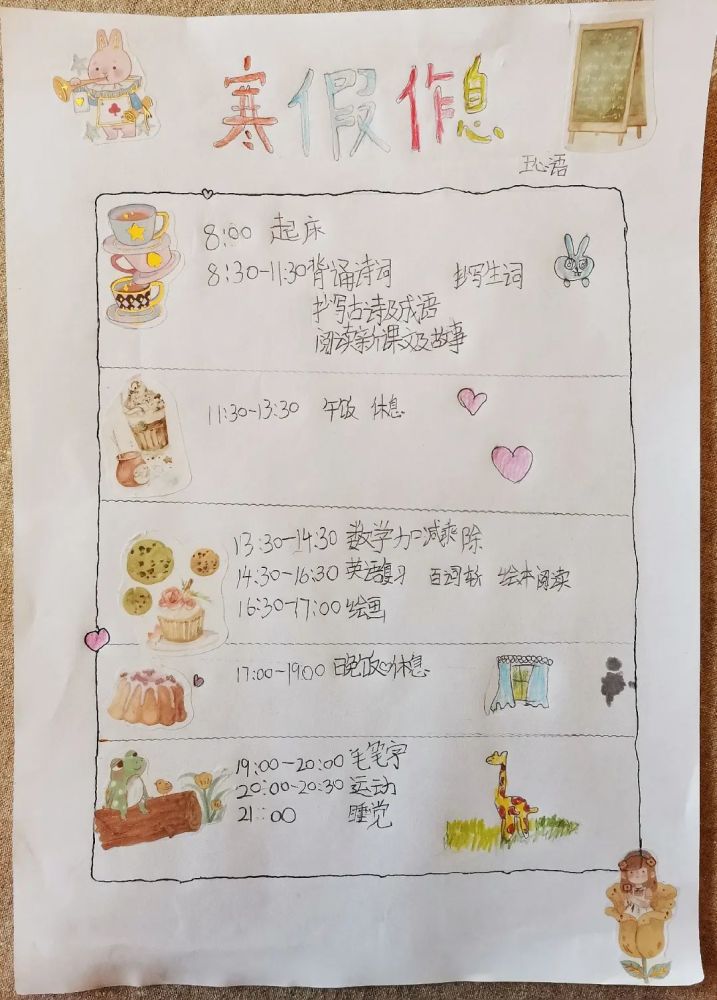 寒假作息
王心语
8:00 起床
8:30-11:30 背诵诗词 抄写生词
抄写古诗及成语
阅读新课文及故事
11:30-13:30 午饭 休息
13:30-14:30 数学加减乘除
14:30-16:30 英语复习 百词斩 绘本阅读
16:30-17:00 绘画
17:00-19:00 晚饭 休息
19:00-20:00 毛笔字
20:00-20:30 运动
21:00 睡觉